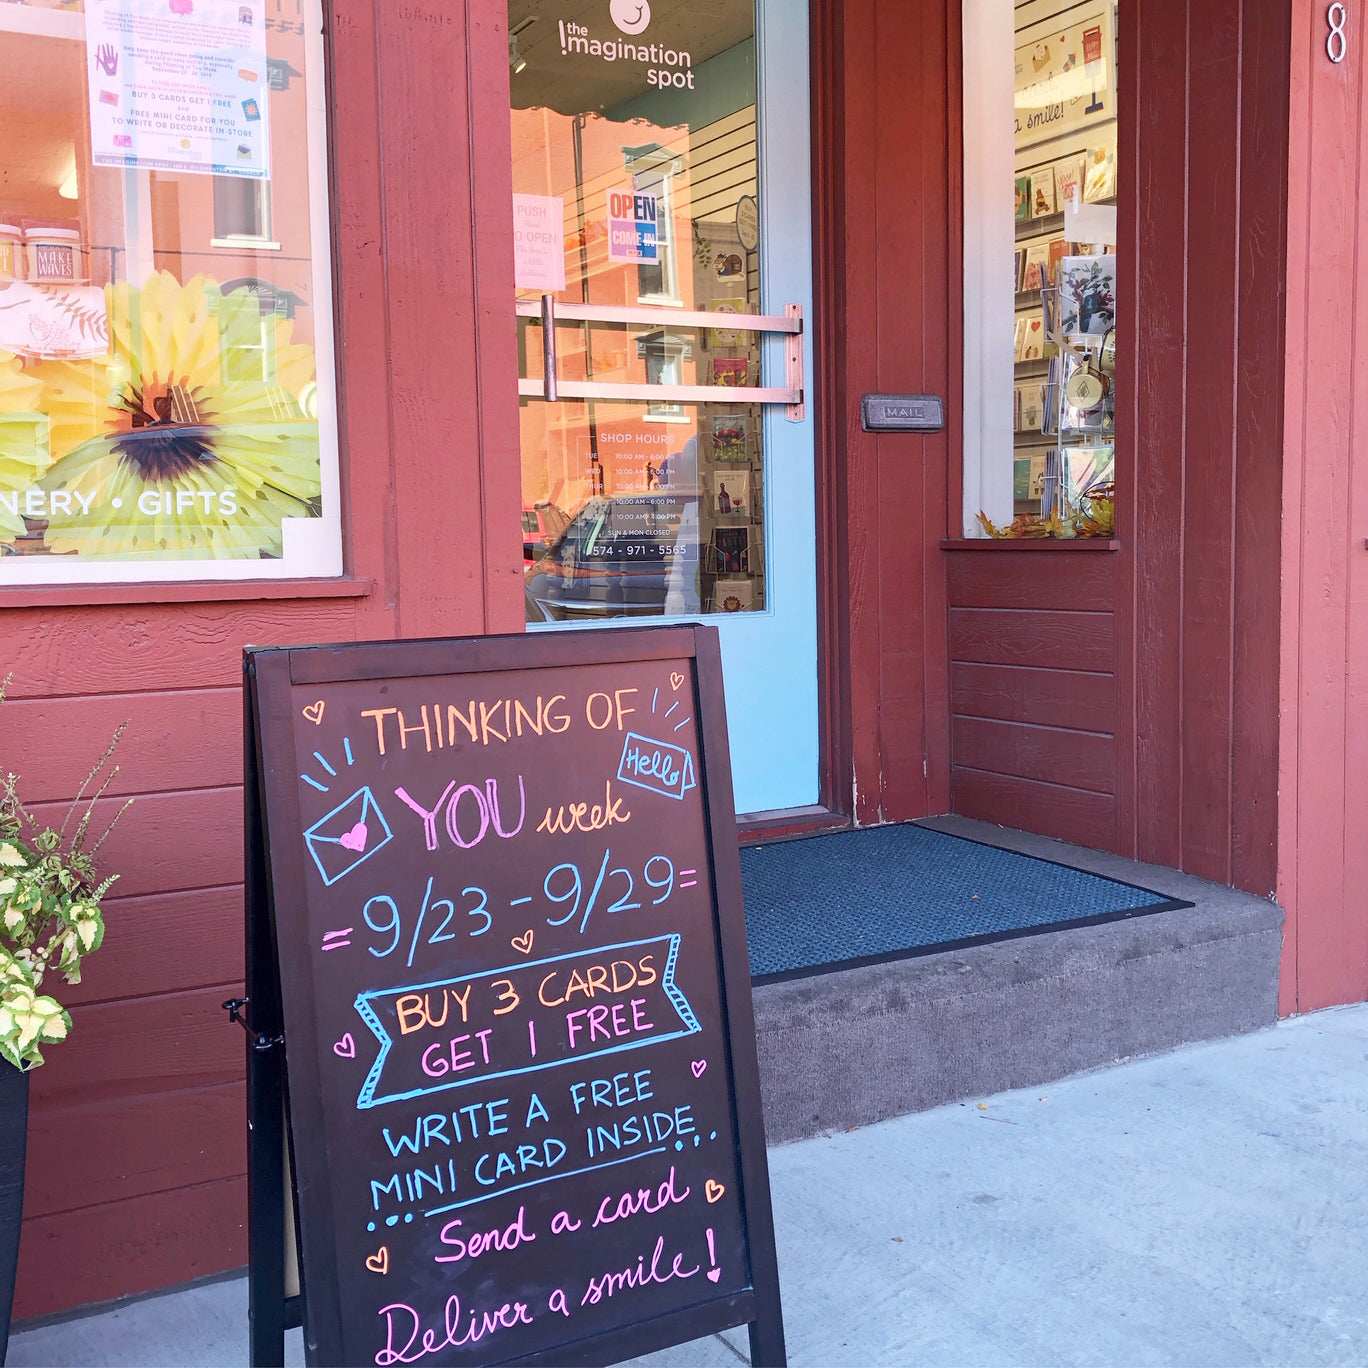 Help keep the good vibes going and consider
BUY 3 CARDS GET 1 FREE
and
FREE MINI CARD FOR YOU
TO WRITE OR DECORATE IN-STORE
the
imagination
spot
MAKE
WAVES
NERY • GIFTS
the
imagination
spot
PUSH
TO OPEN
OPEN
COME IN
SHOP HOURS
TUE 10:00 AM - 6:00 PM
WED 10:00 AM - 6:00 PM
THUR 10:00 AM - 6:00 PM
10:00 AM - 6:00 PM
10:00 AM - 4:00 PM
SUN & MON CLOSED
574 - 971 - 5565
MAIL
a smile!
8
THINKING OF
YOU week
Hello
9/23 - 9/29
BUY 3 CARDS
GET 1 FREE
WRITE A FREE
MINI CARD INSIDE
Send a card
Deliver a smile!